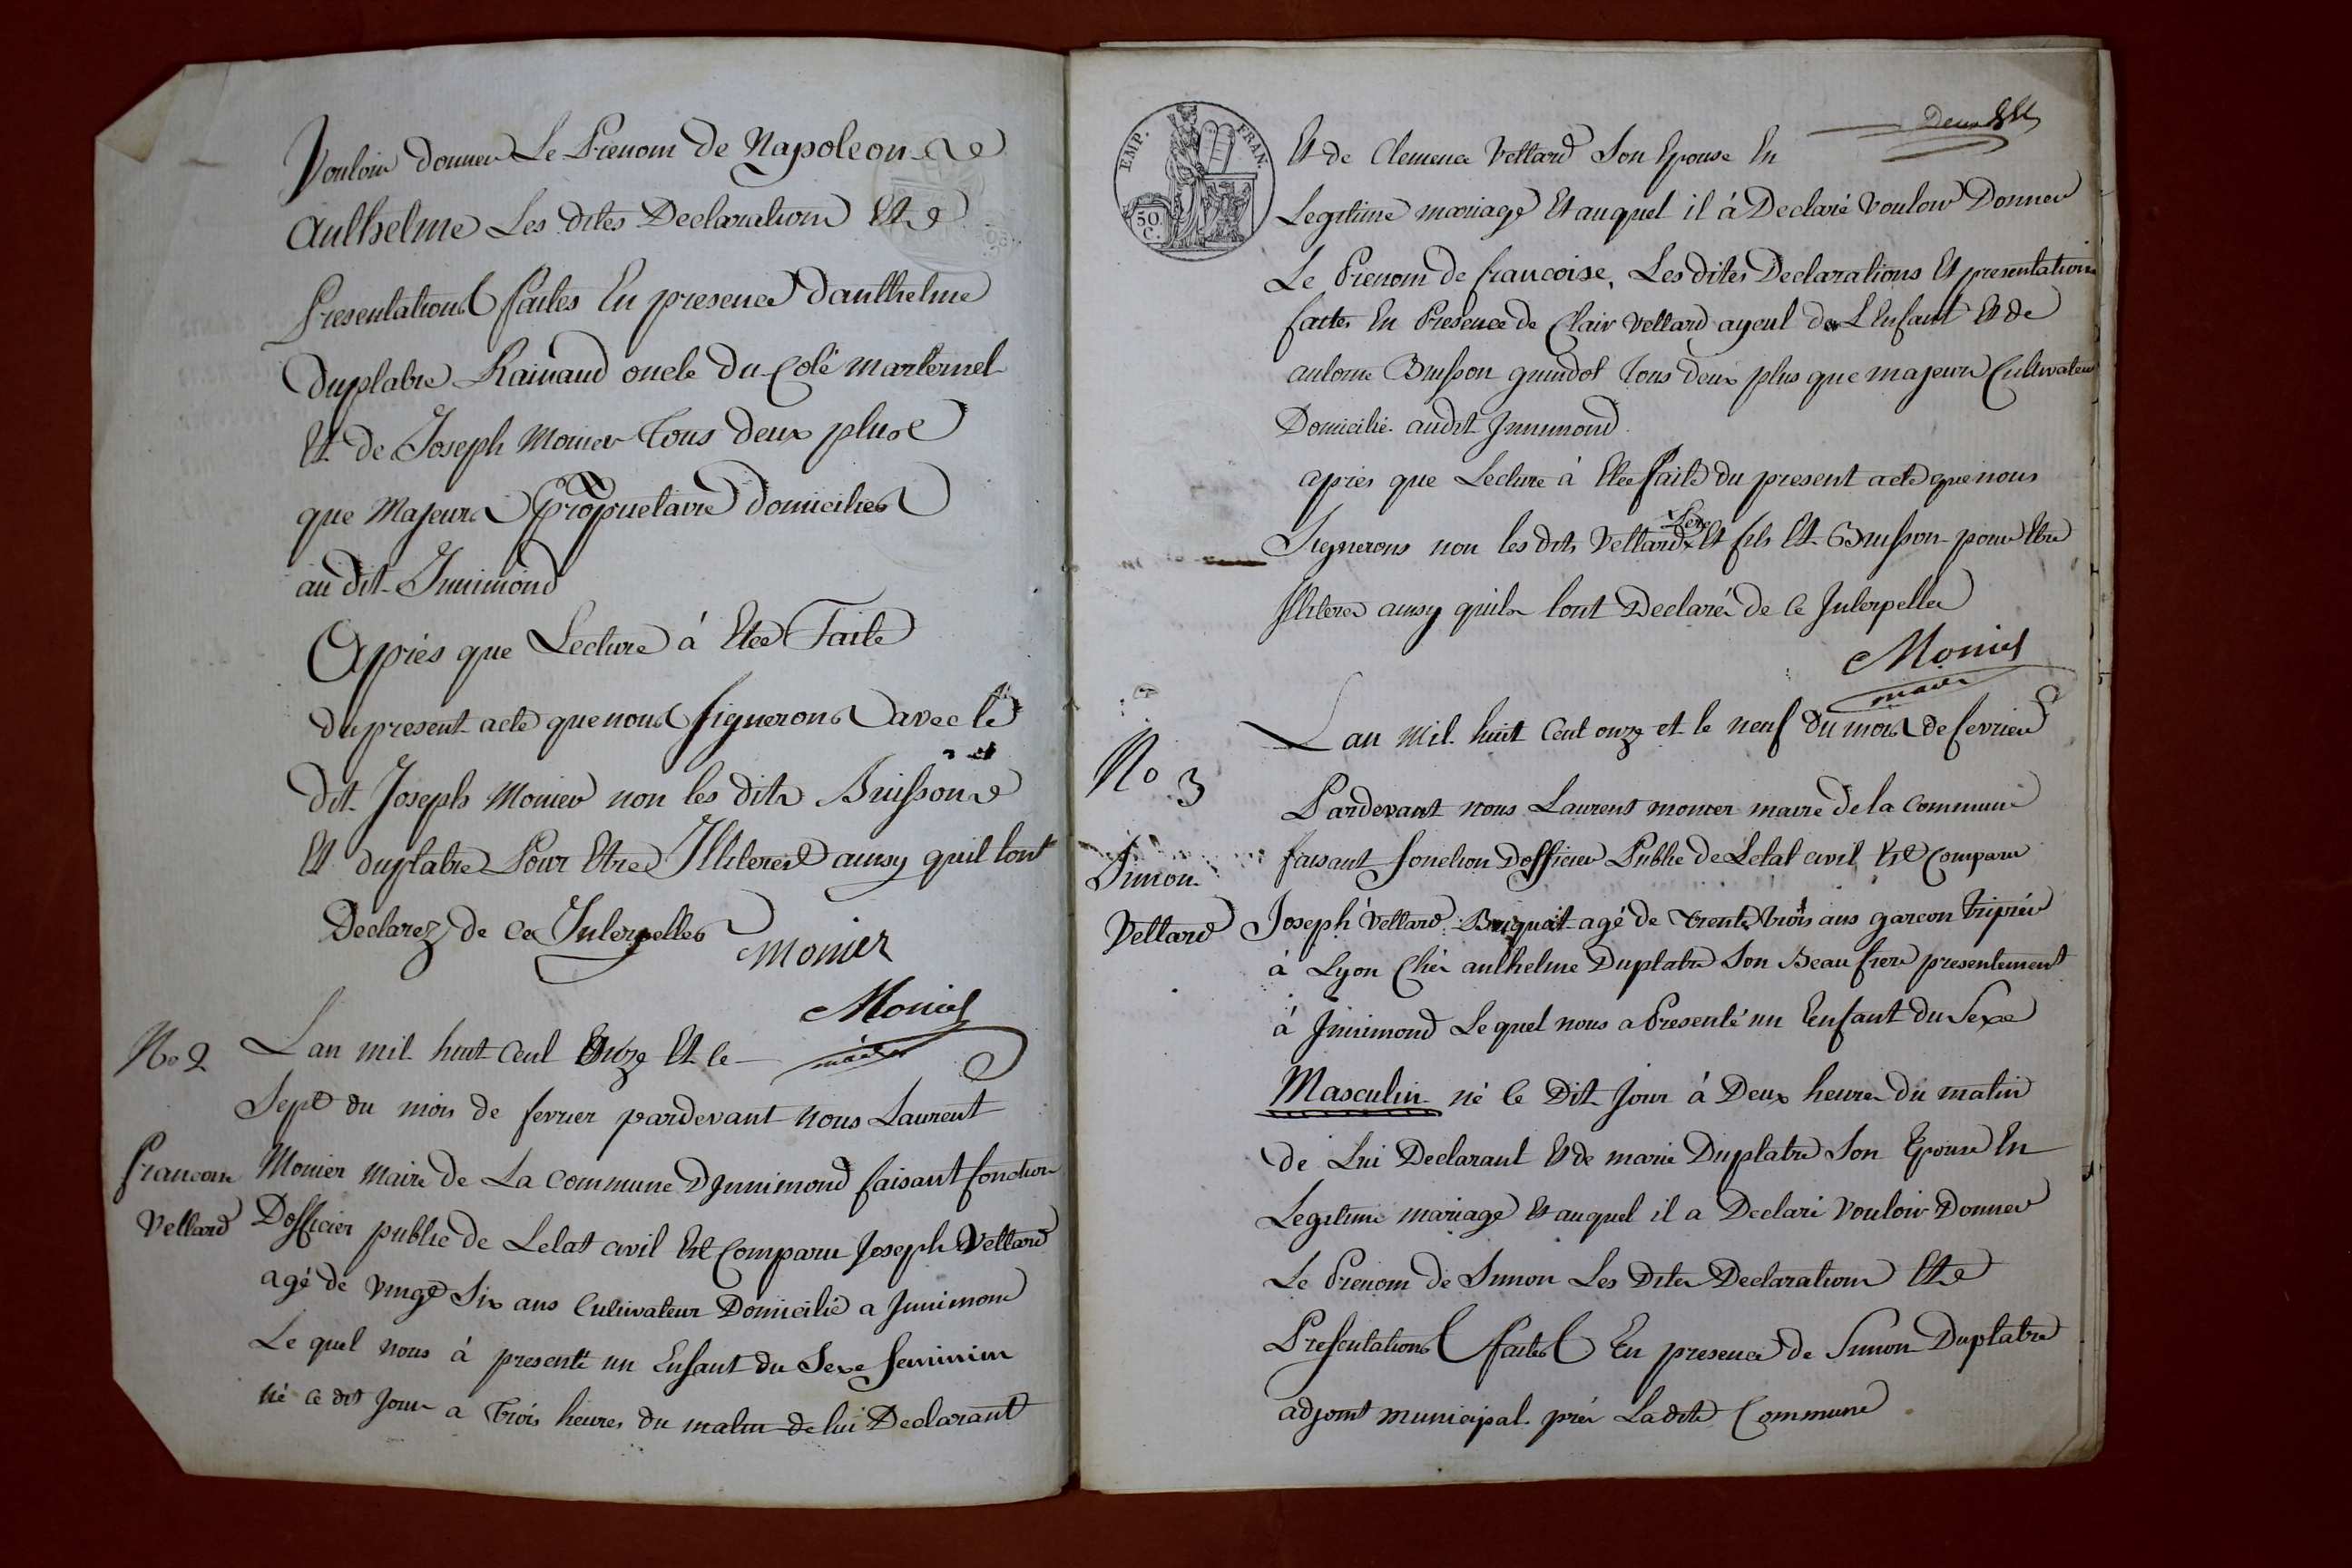 Vouloir donner Le Prenom de Napoleon
Anthelme Les dites Declaration Et
Presentations faites En presence d'anthelme
Duplatre Rainaud oncle du Colé marternel
Et de Joseph Monier Tous deux plus
que Majeurs Propriétaire domiciliés
au dit Innimond
Après que Lecture à Etée Faite
du present acte que nous signerons avec le
dit Joseph Monier non les dits Buisson
Et duplatre Pour Etre Illiteres ainsy quil lont
Declarez de ce Interpelles
Monier
Monier
maire
No 2
Lan mil huit Cent Onze Et le
Sept du mois de fevrier pardevant nous Laurent
francoise
Vellard
Monier maire de La Commune DInnimond faisant fonction
Dofficier public de Letat civil Est Comparu Joseph Vettard
agé de vingt Six ans Cultivateur Domicilié a Innimond
Le quel nous à presenté un Enfant du Sexe feminim
né ce dit Jour a Trois heures du matin de lui Declarant
EMP. FRAN.
50 C.
Deux
Et de Clemence Vettard Son Epouse En
Legitime mariage Et auquel il à Declaré vouloir Donner
Le Prenom de francoise, Les dites Declarations Et presentations
faites En Presence de Clair Vettard ayeul de L'Enfant Et de
antoine Buisson guindot Tous deux plus que majeurs Cultivateurs
Domicilié audit Innimond
après que Lecture à Etee faite du present acte que nous
pere
Signerons non les dits Vettard x Et fils Et Buisson pour Etre
Illiteres ainsy quils lont Declarés de Ce Interpellés
Monier
maire
Lan mil huit Cent onze et le neuf du mois de fevrier
No 3
Pardevant nous Laurent monier maire de la Commune
faisant fonction Dofficier Public de Letat civil Est Comparu
Simon
Vettard
Joseph Vettard Buquet agé de Trente trois ans garcon Tripiér
à Lyon Chés anthelme Duplatre Son Beau frere presentement
à Innimond Le quel nous a Presenté un Enfant du Sexe
Masculin né Ce Dit Jour à Deux heures du matin
de Lui Declarant Et de marie Duplatre Son Epouse En
Legitime mariage Et auquel il a Declaré Vouloir Donner
Le Prenom de Simon Les Dites Declaration Et
Presentations faites En presence de Simon Duplatre
adjoint municipal prés Ladite Commune